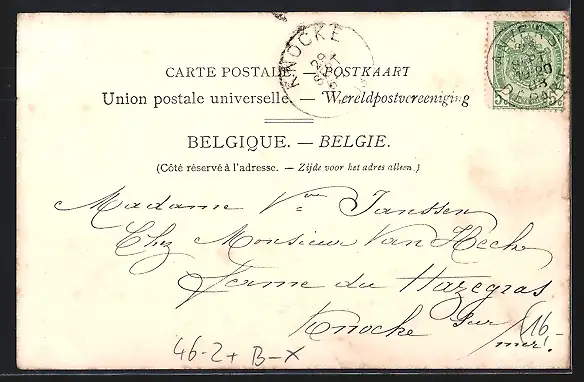 KNOCKE
CARTE POSTALE. — POSTKAART
Union postale universelle. — Wereldpostvereeniging
BELGIQUE. — BELGIE.
(Côté réservé à l'adresse. — Zijde voor het adres alleen.)
Madame Vve Janssen
Chez Monsieur Van Hecke
Ferme du Hazegras
Knocke sur
mer!
16
46-2+ B-X